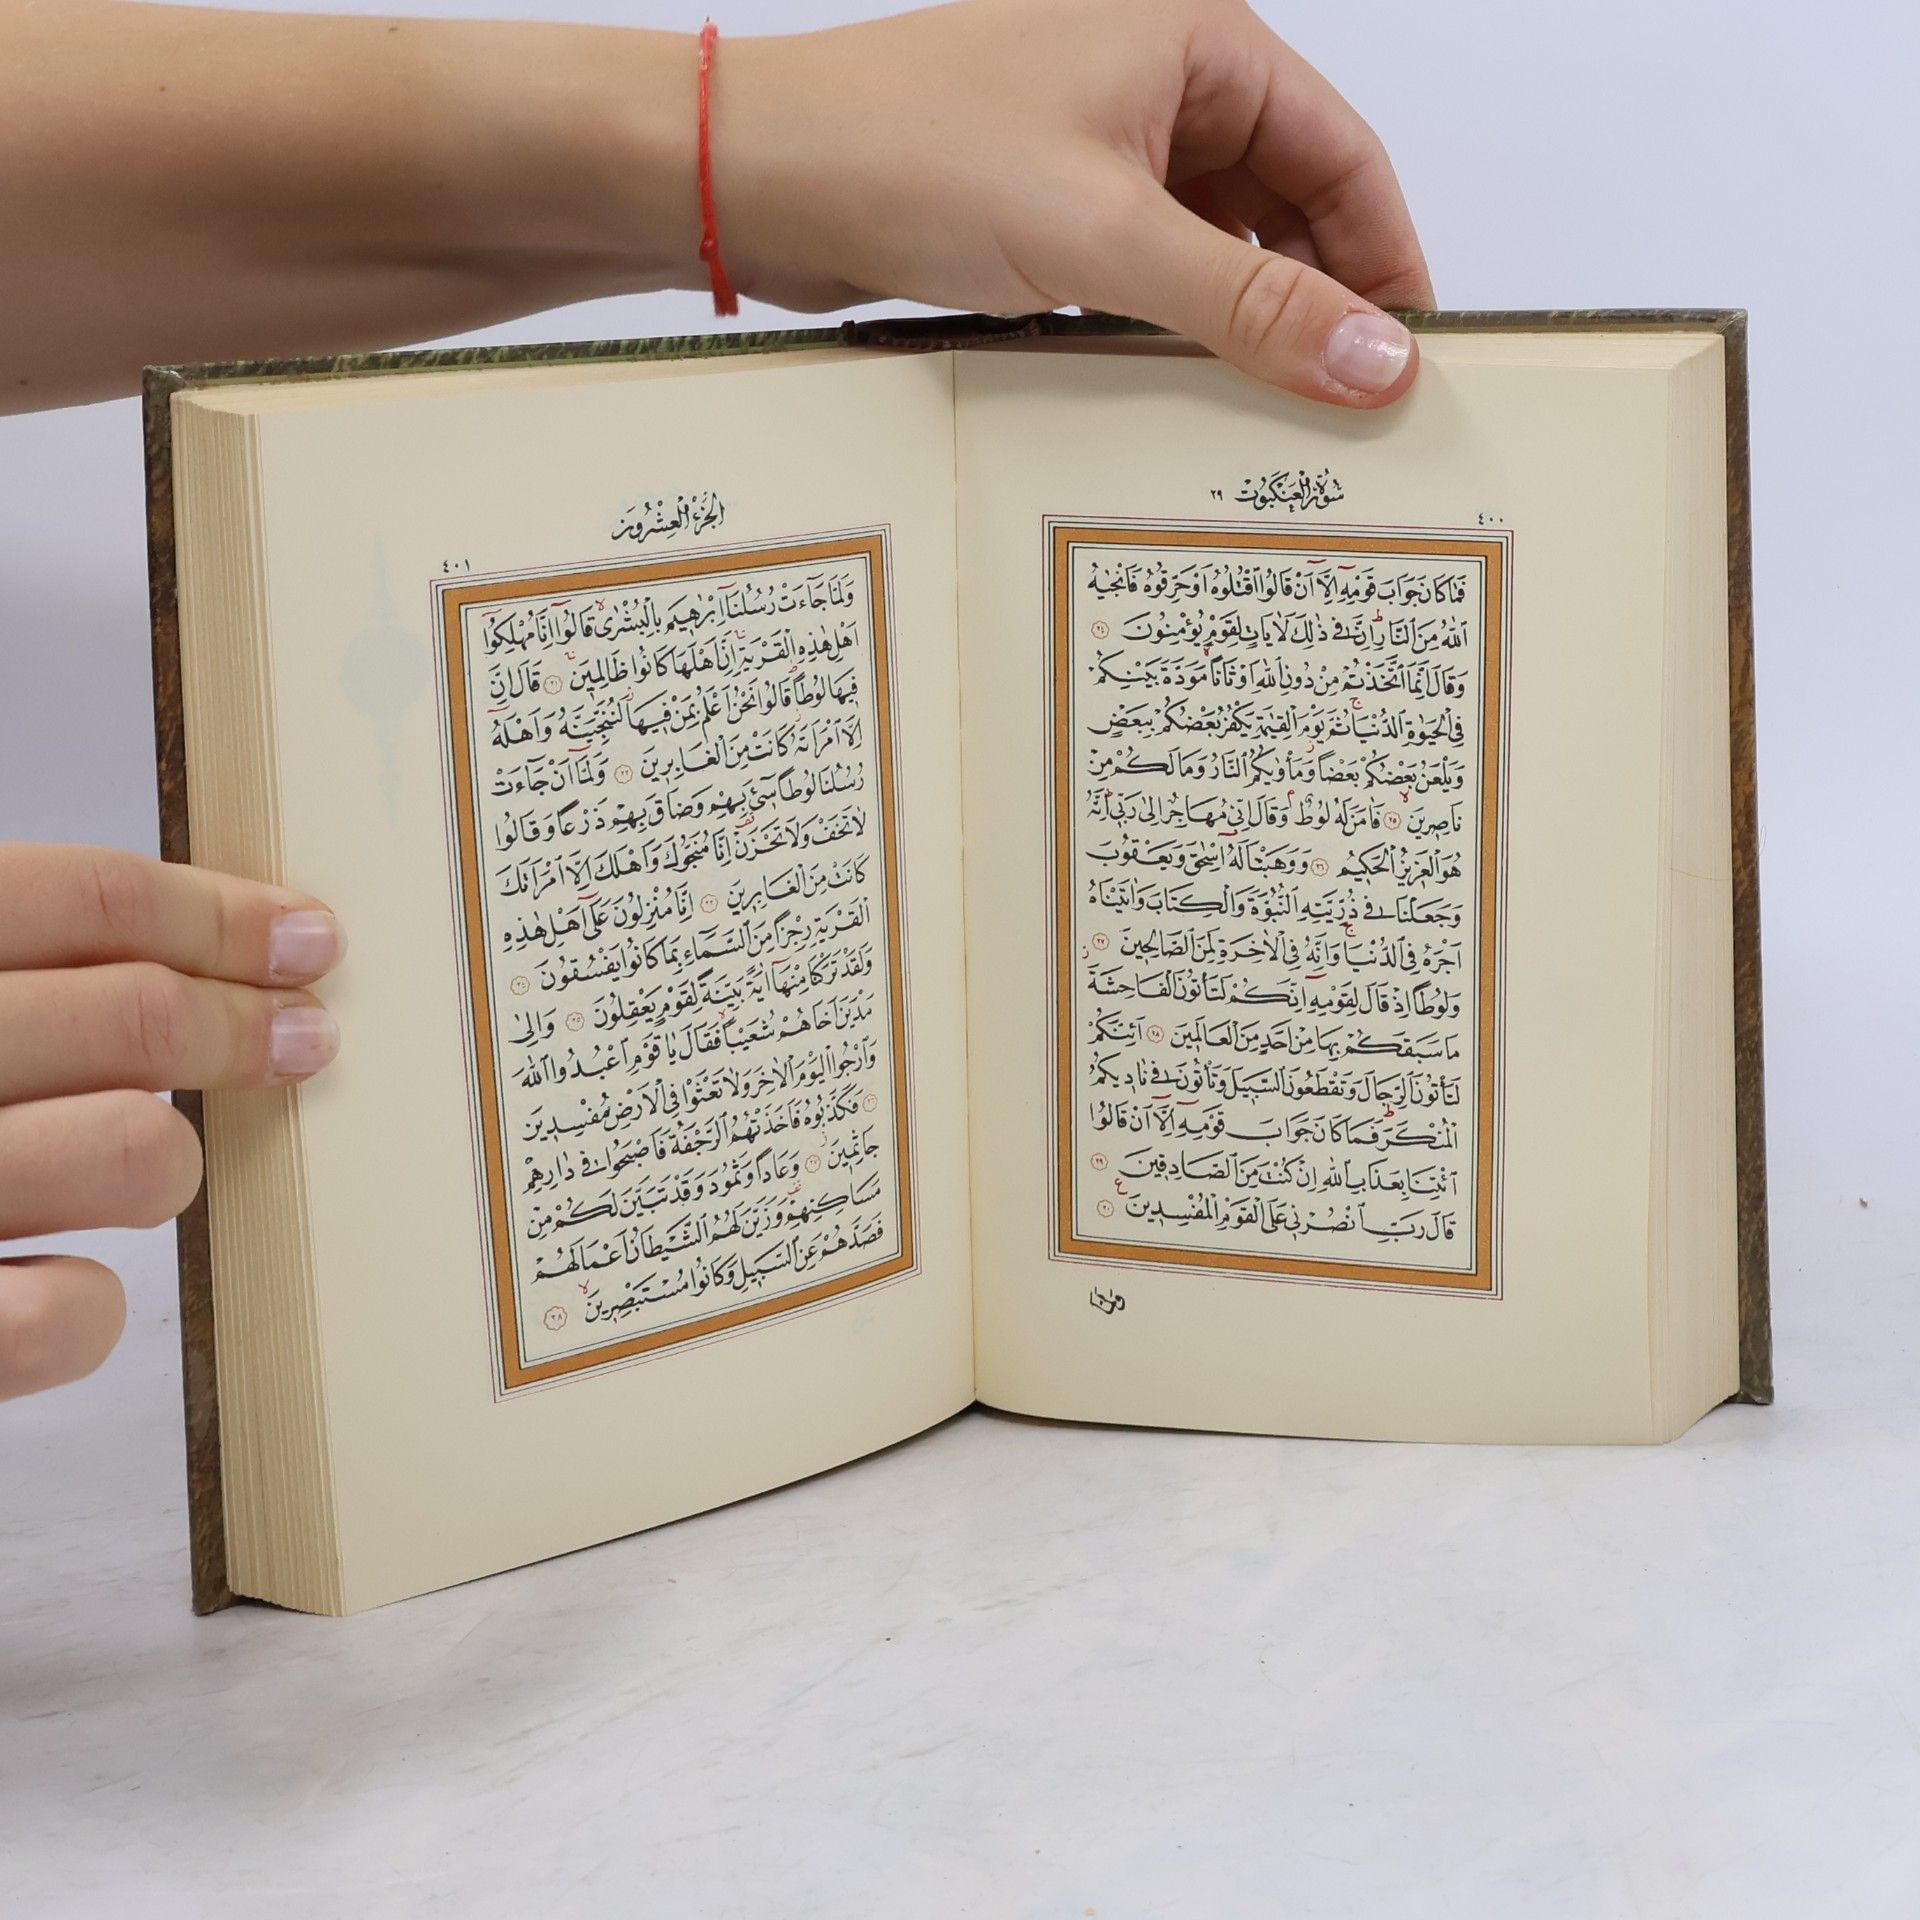 سُورَةُ الْعَنْكَبُوتِ ٢٩
٤٠٠
فَمَا كَانَ جَوَابَ قَوْمِهِ اِلَّٓا اَنْ قَالُوا اقْتُلُوهُ اَوْ حَرِّقُوهُ فَاَنْجٰيهُ
اللّٰهُ مِنَ النَّارِ اِنَّ فِي ذٰلِكَ لَاٰيَاتٍ لِقَوْمٍ يُؤْمِنُونَ ٢٤
وَقَالَ اِنَّمَا اتَّخَذْتُمْ مِنْ دُونِ اللّٰهِ اَوْثَانًا مَوَدَّةَ بَيْنِكُمْ
فِي الْحَيٰوةِ الدُّنْيَا ثُمَّ يَوْمَ الْقِيٰمَةِ يَكْفُرُ بَعْضُكُمْ بِبَعْضٍ
وَيَلْعَنُ بَعْضُكُمْ بَعْضًا وَمَأْوٰيكُمُ النَّارُ وَمَا لَكُمْ مِنْ
نَاصِرِينَ ٢٥ فَاٰمَنَ لَهُ لُوطٌ وَقَالَ اِنِّي مُهَاجِرٌ اِلٰى رَبِّي اِنَّهُ
هُوَ الْعَزِيزُ الْحَكِيمُ ٢٦ وَوَهَبْنَا لَهُٓ اِسْحٰقَ وَيَعْقُوبَ
وَجَعَلْنَا فِي ذُرِّيَّتِهِ النُّبُوَّةَ وَالْكِتَابَ وَاٰتَيْنَاهُ
اَجْرَهُ فِي الدُّنْيَا وَاِنَّهُ فِي الْاٰخِرَةِ لَمِنَ الصَّالِحِينَ ٢٧
وَلُوطًا اِذْ قَالَ لِقَوْمِهِٓ اِنَّكُمْ لَتَأْتُونَ الْفَاحِشَةَ
مَا سَبَقَكُمْ بِهَا مِنْ اَحَدٍ مِنَ الْعَالَمِينَ ٢٨ اَئِنَّكُمْ
لَتَأْتُونَ الرِّجَالَ وَتَقْطَعُونَ السَّبِيلَ وَتَأْتُونَ فِي نَادِيكُمُ
الْمُنْكَرَ فَمَا كَانَ جَوَابَ قَوْمِهِٓ اِلَّٓا اَنْ قَالُوا
ائْتِنَا بِعَذَابِ اللّٰهِ اِنْ كُنْتَ مِنَ الصَّادِقِينَ ٢٩
قَالَ رَبِّ انْصُرْنِي عَلَى الْقَوْمِ الْمُفْسِدِينَ ٣٠
اَلْجُزْءُ الْعِشْرُونَ
٤٠١
وَلَمَّا جَٓاءَتْ رُسُلُنَٓا اِبْرٰهِيمَ بِالْبُشْرٰى قَالُٓوا اِنَّا مُهْلِكُٓوا
اَهْلِ هٰذِهِ الْقَرْيَةِ اِنَّ اَهْلَهَا كَانُوا ظَالِمِينَ ٣١ قَالَ اِنَّ
فِيهَا لُوطًا قَالُوا نَحْنُ اَعْلَمُ بِمَنْ فِيهَا لَنُنَجِّيَنَّهُ وَاَهْلَهُٓ
اِلَّا امْرَاَتَهُ كَانَتْ مِنَ الْغَابِرِينَ ٣٢ وَلَمَّٓا اَنْ جَٓاءَتْ
رُسُلُنَا لُوطًا سِٓيءَ بِهِمْ وَضَاقَ بِهِمْ ذَرْعًا وَقَالُوا
لَا تَخَفْ وَلَا تَحْزَنْ اِنَّا مُنَجُّوكَ وَاَهْلَكَ اِلَّا امْرَاَتَكَ
كَانَتْ مِنَ الْغَابِرِينَ ٣٣ اِنَّا مُنْزِلُونَ عَلٰٓى اَهْلِ هٰذِهِ
الْقَرْيَةِ رِجْزًا مِنَ السَّمَٓاءِ بِمَا كَانُوا يَفْسُقُونَ ٣٤
وَلَقَدْ تَرَكْنَا مِنْهَٓا اٰيَةً بَيِّنَةً لِقَوْمٍ يَعْقِلُونَ ٣٥ وَاِلٰى
مَدْيَنَ اَخَاهُمْ شُعَيْبًا فَقَالَ يَا قَوْمِ اعْبُدُوا اللّٰهَ
وَارْجُوا الْيَوْمَ الْاٰخِرَ وَلَا تَعْثَوْا فِي الْاَرْضِ مُفْسِدِينَ
٣٦ فَكَذَّبُوهُ فَاَخَذَتْهُمُ الرَّجْفَةُ فَاَصْبَحُوا فِي دَارِهِمْ
جَاثِمِينَ ٣٧ وَعَادًا وَثَمُودَ وَقَدْ تَبَيَّنَ لَكُمْ مِنْ
مَسَاكِنِهِمْ وَزَيَّنَ لَهُمُ الشَّيْطَانُ اَعْمَالَهُمْ
فَصَدَّهُمْ عَنِ السَّبِيلِ وَكَانُوا مُسْتَبْصِرِينَ ٣٨